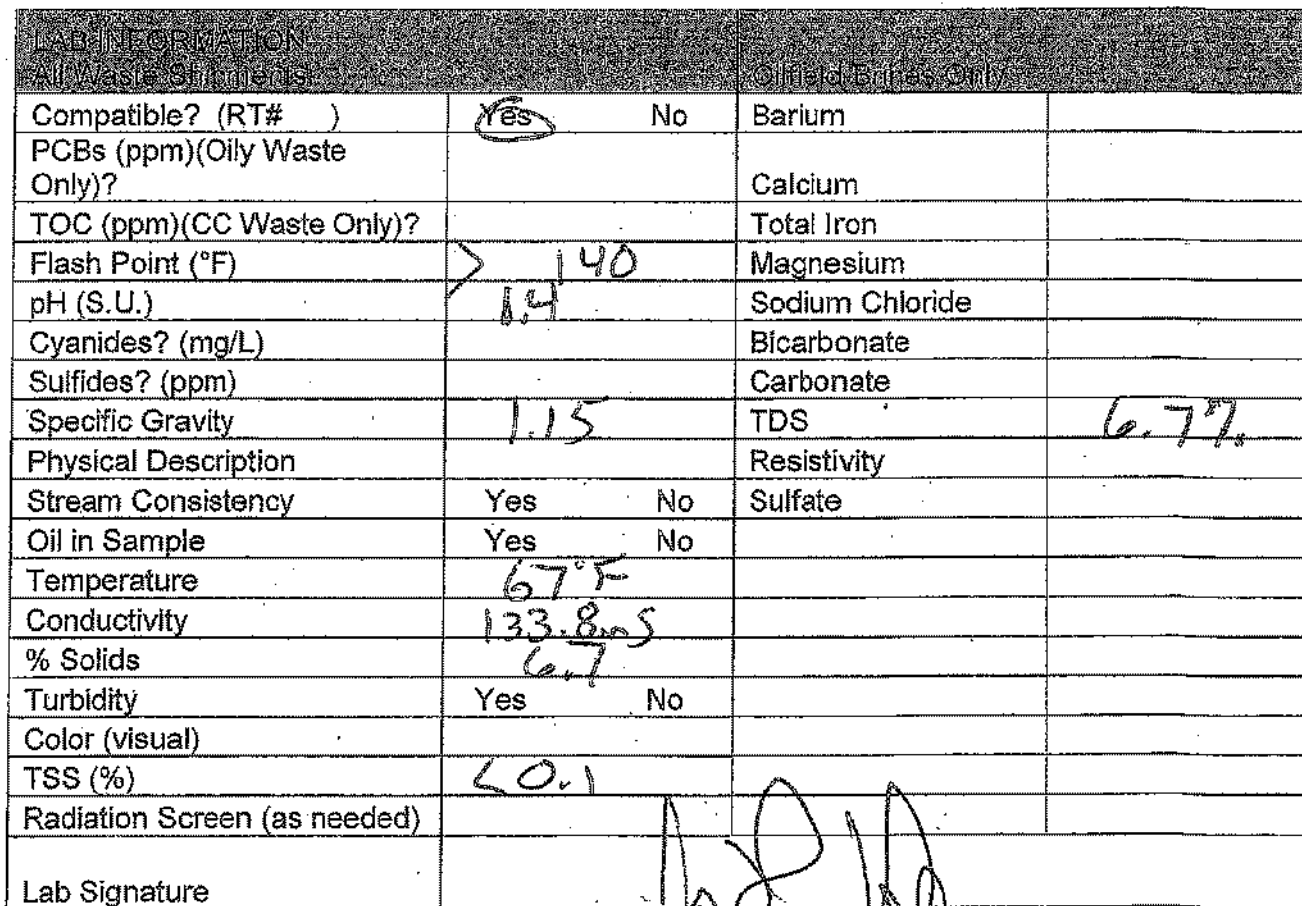 LAB INFORMATION
All Waste Shipments Oilfield Brines Only
Compatible? (RT# ) Yes No Barium
PCBs (ppm)(Oily Waste
Only)? Calcium
TOC (ppm)(CC Waste Only)? Total Iron
Flash Point (°F) > 140 Magnesium
pH (S.U.) 1.4 Sodium Chloride
Cyanides? (mg/L) Bicarbonate
Sulfides? (ppm) Carbonate
Specific Gravity 1.15 TDS 6.7%
Physical Description Resistivity
Stream Consistency Yes No Sulfate
Oil in Sample Yes No
Temperature 67°F
Conductivity 133.8mS
% Solids 6.7
Turbidity Yes No
Color (visual)
TSS (%) <0.1
Radiation Screen (as needed)
Lab Signature